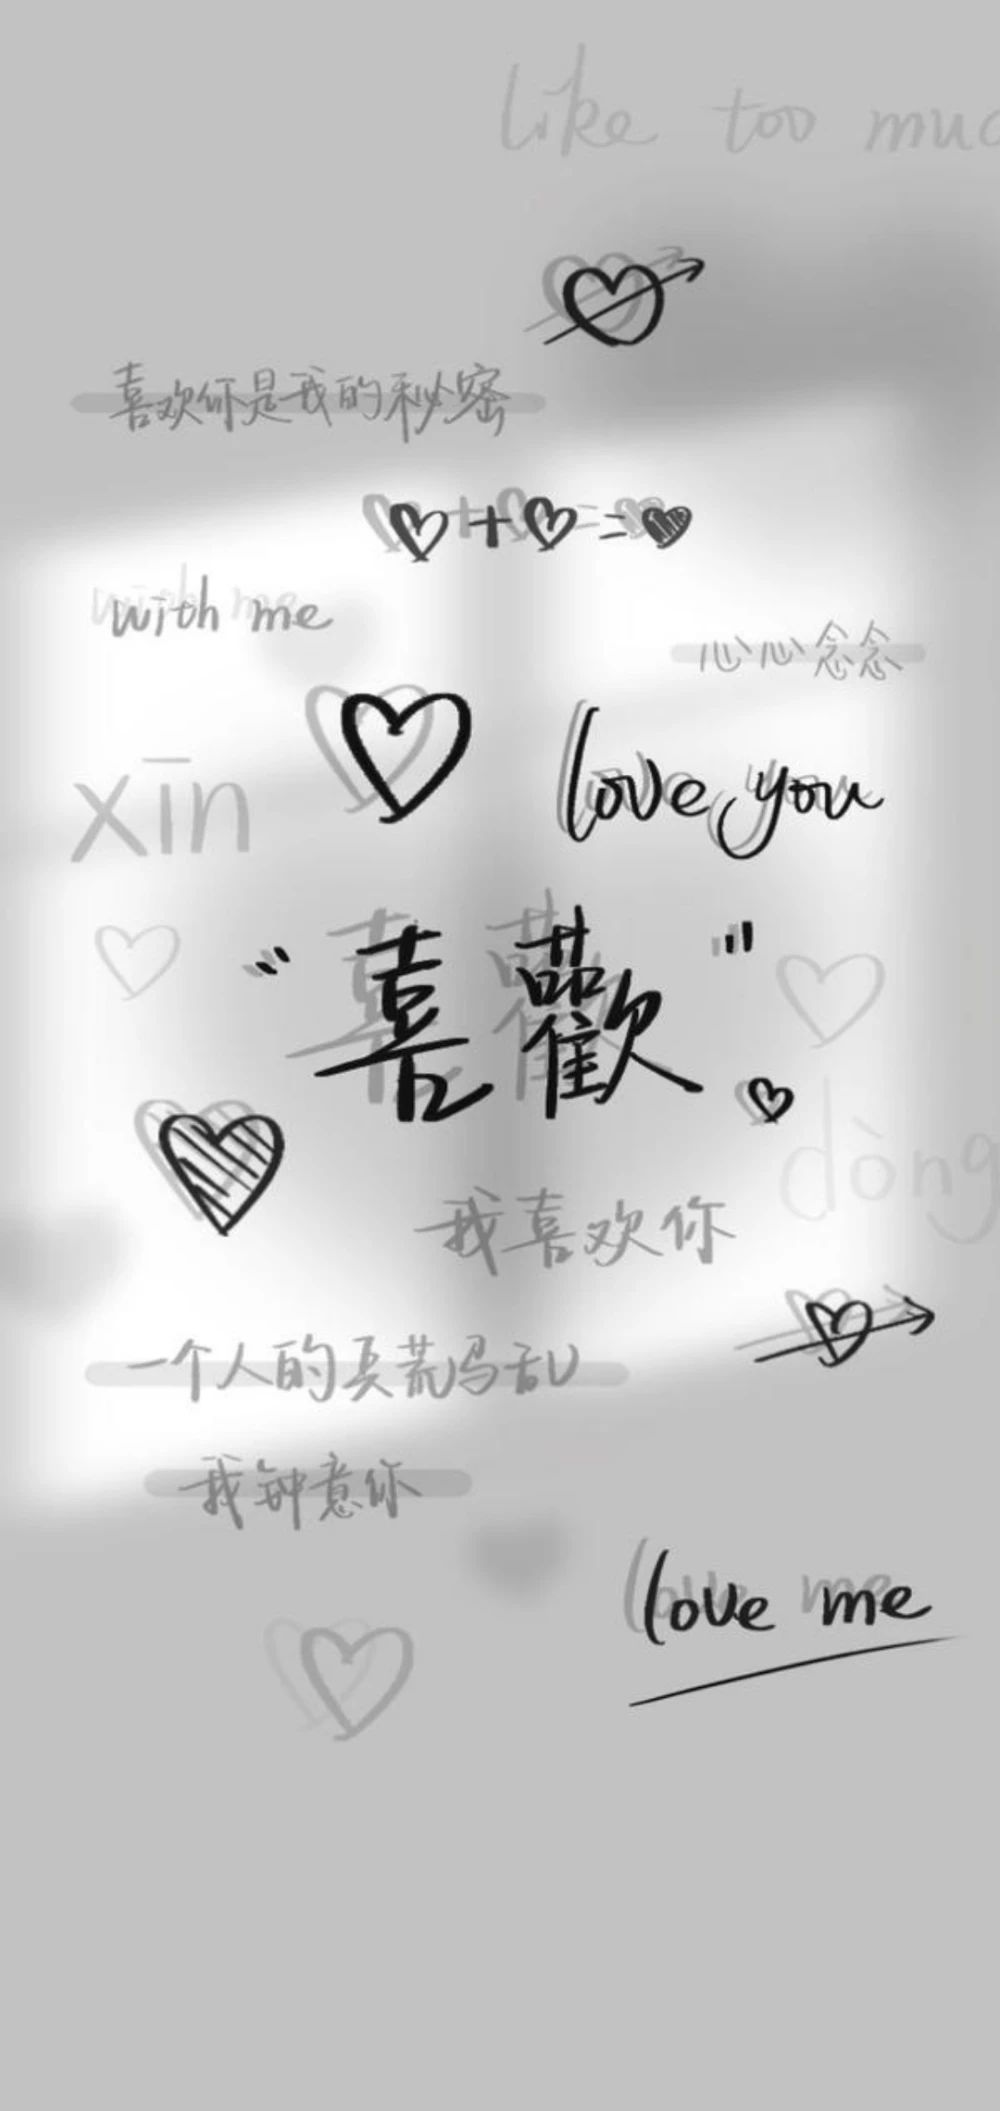 like too muc
喜欢你是我的秘密
with me
心心念念
love you
xīn
“喜歡”
dòng
我喜欢你
一个人的兵荒马乱
我钟意你
love me